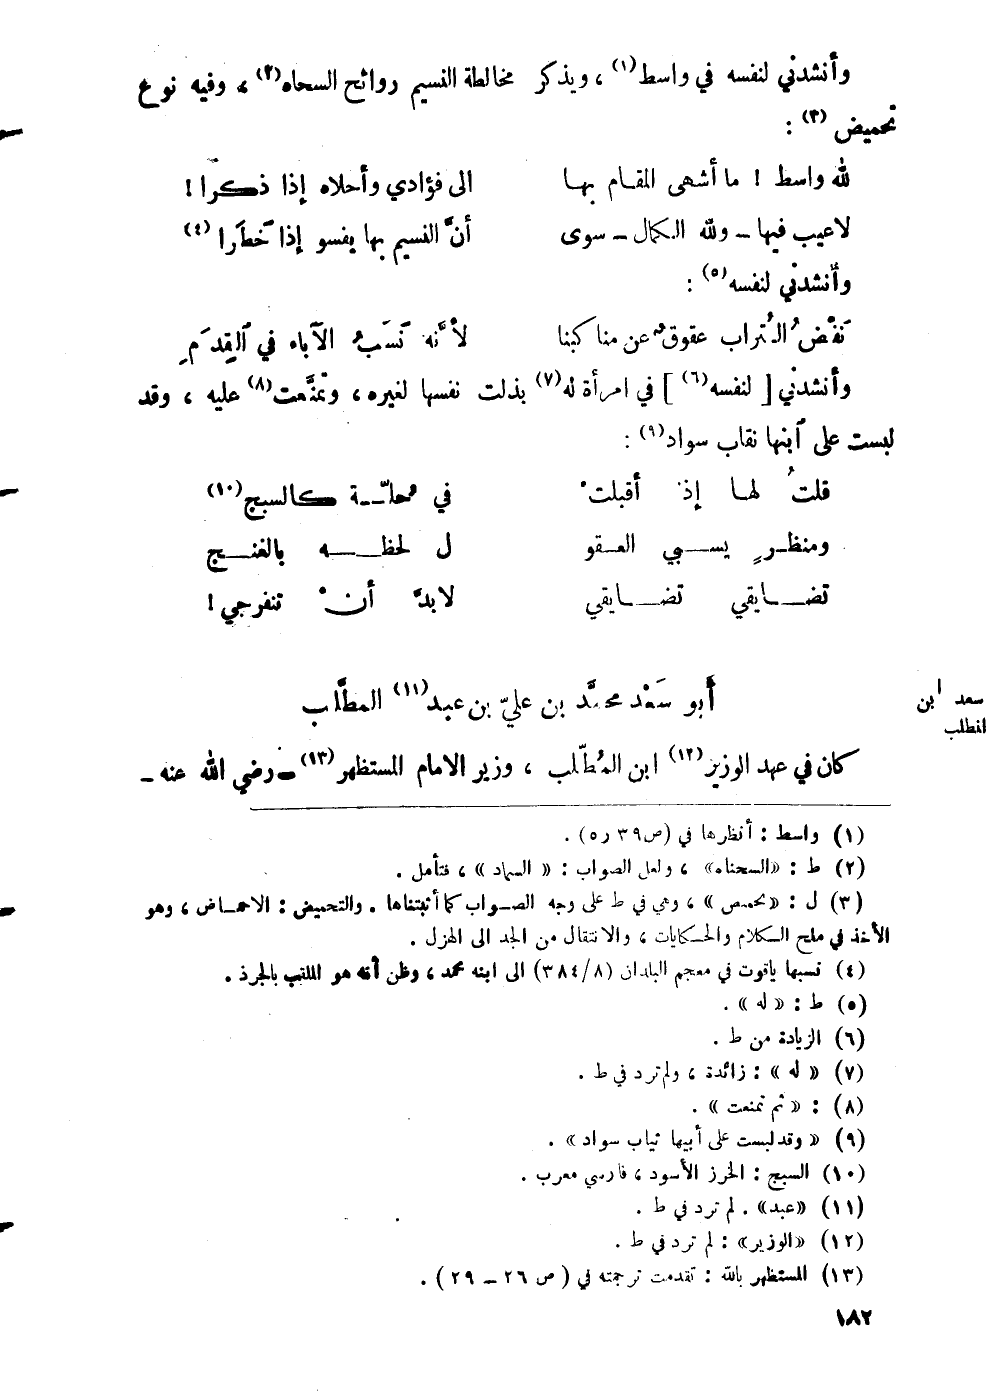 وأنشدني لنفسه في واسط(١) ، ويذكر مخالطة النسيم روائح السحاه(٢) ، وفيه نوع
تحميض(٣) :
لله واسط ! ما أشهى المقام بها الى فؤادي وأحلاه إذا ذكرا !
لاعيب فيها ـ ولله الكمال ـ سوى أنَّ النسيم بها يفسو إذا خَطَرا(٤)
وأنشدني لنفسه(٥) :
نَفْضُ التُراب عقوق عن مناكبنا لأنَّه نَسَبُ الآباء في القِدَمِ
وأنشدني [ لنفسه(٦) ] في امرأة له(٧) بذلت نفسها لغيره ، وتمنَّعت(٨) عليه ، وقد
لبست على ابنها نقاب سواد(٩) :
قلتُ لها إذْ أقبلتْ في حلّة كالسبج(١٠)
ومنظرٍ يسبي العقو ل لحظه بالغنج
تضايقي تضايقي لابدَّ أنْ تنفرجي !
سعد ابن
المطلب
أبو سَعْد محمّد بن عليّ بن عبد(١١) المطَّلب
كان في عهد الوزير(١٢) ابن المُطّلب ، وزير الامام المستظهر(١٣) ـ رضي الله عنه ـ
(١) واسط : أنظرها في (ص٣٩ ر٥) .
(٢) ط : «السحناه» ، ولعل الصواب : « السماد » ، فتأمل .
(٣) ل : « تحميص » ، وهي في ط على وجه الصواب كما أثبتناها . والتحميض : الاحماض ، وهو
الأخذ في ملح الكلام والحكايات ، والانتقال من الجد الى الهزل .
(٤) نسبها ياقوت في معجم البلدان (٣٨٤/٨) الى ابنه محمد ، وظن أنه هو الملقب بالجرذ .
(٥) ط : « له » .
(٦) الزيادة من ط .
(٧) « له » : زائدة ، ولم ترد في ط .
(٨) : « ثم تمنعت » .
(٩) « وقد لبست على أبيها ثياب سواد » .
(١٠) السبج : الخرز الأسود ، فارسي معرب .
(١١) «عبد» . لم ترد في ط .
(١٢) «الوزير» : لم ترد في ط .
(١٣) المستظهر بالله : تقدمت ترجمته في ( ص ٢٦ ـ ٢٩ ) .
١٨٢